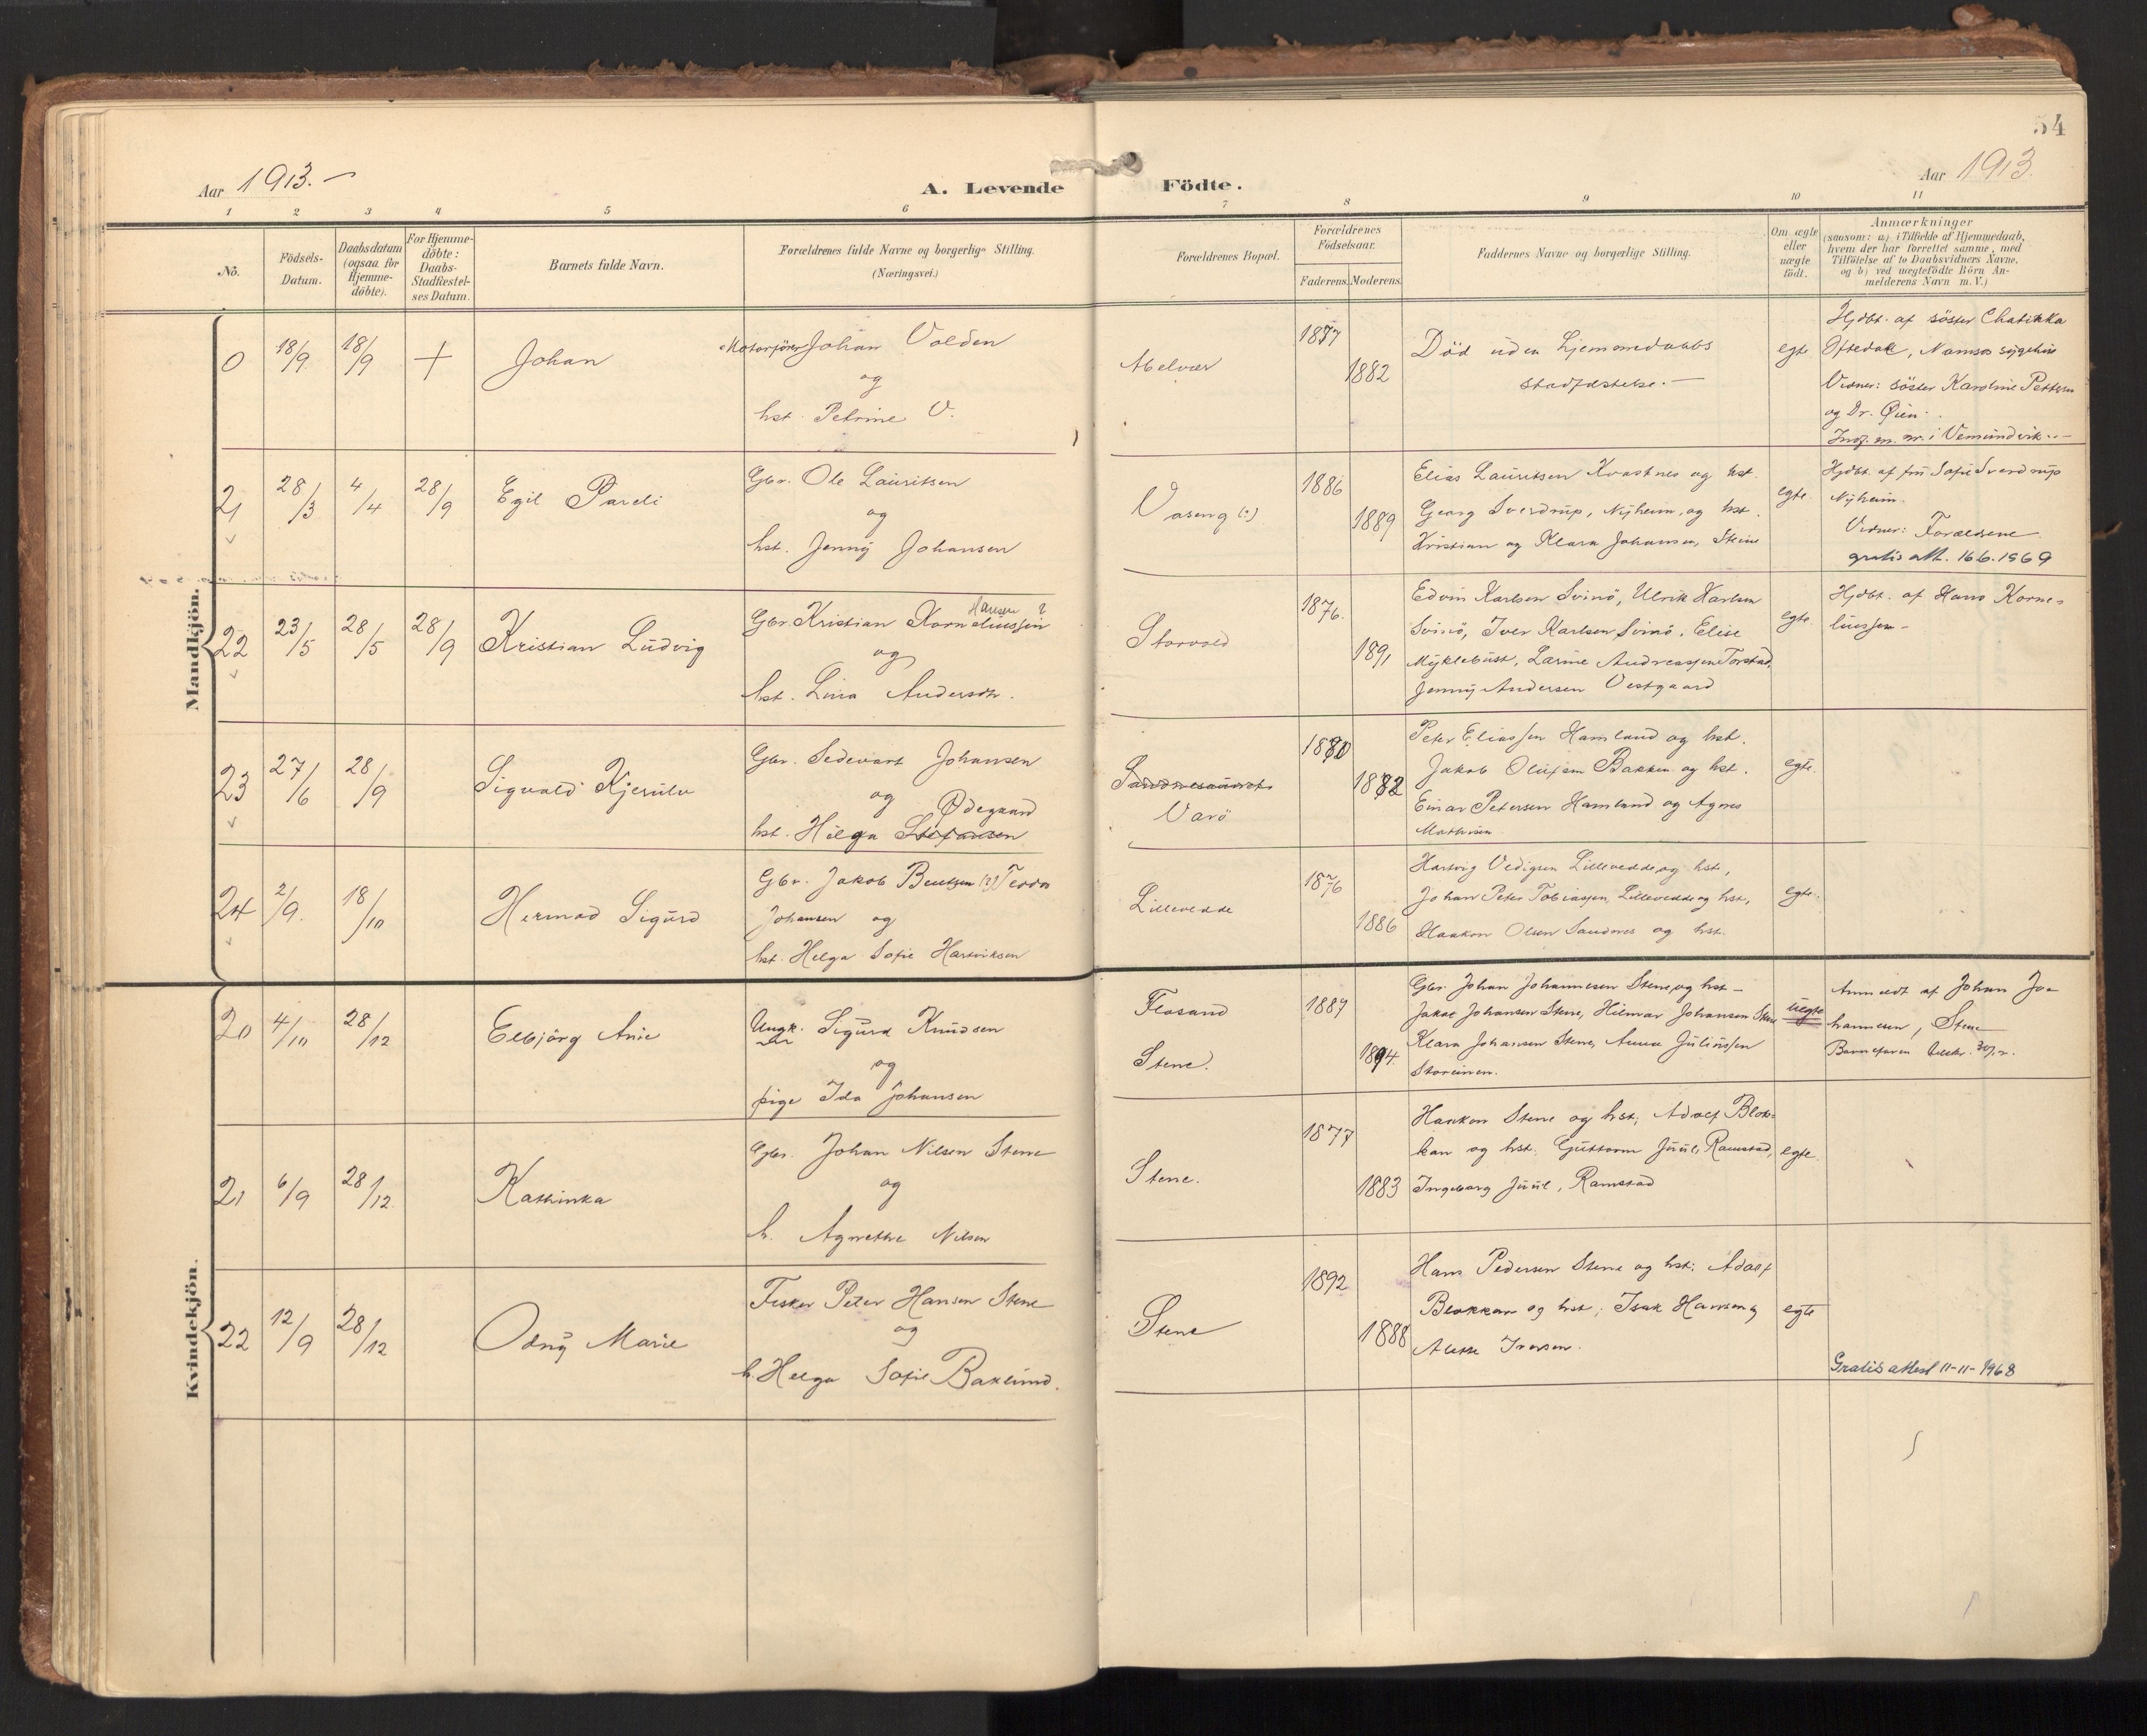 54
Aar 1913.
A. Levende Födte.
Aar 1913.
1 2 3 4 5 6 7 8 9 10 11
No.
Födsels-
Datum.
Daabsdatum
(ogsaa for
Hjemme-
döbte).
For Hjemme-
döbte:
Daabs-
Stadfæstel-
ses Datum.
Barnets fulde Navn.
Forældrenes fulde Navne og borgerlige Stilling.
(Næringsvei.)
Forældrenes Bopæl.
Forældrenes
Födselsaar.
Faderens. Moderens.
Faddernes Navne og borgerlige Stilling.
Om ægte
eller
uægte
födt.
Anmærkninger
(saasom: a) i Tilfælde af Hjemmedaab,
hvem der har forrettet samme, med
Tilföielse af to Daabsvidners Navne,
og b) ved uægtefödte Börn An-
melderens Navn m. V.)
Mandkjön.
0 18/9 18/9 + Johan
Motorfører Johan Volden
og
hst. Petrine V.
Abelvær
1877
1882
Död uden hjemmedaabs
stadfæstelse. —
egte
Hjdbt. af söster Chatinka
Oftedal, Namsos sygehus
Vidner: söster Karoline Pettersen
og Dr. Øien.
Indf. m. nr. i Vemundvik. —
21 28/3 4/4 28/9 Egil Pareli
Gbr. Ole Lauritsen
og
hst. Jenny Johansen
Vaseng (?)
1886
1889
Elias Lauritsen Kvastnes og hst.
Georg Sverdrup, Nyheim, og hst.
Kristian og Klara Johansen, Steine
egte.
Hjdbt. af fru Sofie Sverdrup
Nyheim.
Vidner: Forældrene.
gratis att. 16.6.1969
22 23/5 28/5 28/9 Kristian Ludvig
Hansen ?
Gbr. Kristian Korneliussen
og
hst. Lina Anderson.
Storvold
1876.
1891
Edvin Karlsen Svinö, Ulrik Karlsen
Svinö, Iver Karlsen Svinö, Elise
Myklebust, Larine Andreassen Torstad,
Jenny Andersen Vestgaard
egte.
Hjdbt. af Hans Korne-
liussen —
23 27/6 28/9 Sigvald Kjerulv
Gbr. Sedevart Johansen
og Ødegaard
hst. Helga Stefansen
Varö
1880
1882
Peter Eliassen Hamland og hst.
Jakob Olufsen Bakken og hst.
Einar Petersen Hamland og Agnes
Mathisen
egte.
24 2/9. 18/10 Hermod Sigurd
Gbr. Jakob Bentsen (?) Teodor
Johansen og
hst. Helga Sofie Hartviksen
Lillevedde
1876
1886
Hartvig Vedigsen Lillevedde og hst,
Johan Peter Tobiassen, Lillevedde og hst,
Haakon Olsen Sandnes og hst.
egte.
Kvindekjön.
20 4/10 28/12 Elbjörg Anie
Ungk. Sigurd Knudsen
og
pige Ida Johansen
Flosand
Stene.
1887
1894.
Gbr. Johan Johannesen Stene, og hst —
Jakob Johansen Stene, Hilmar Johansen Stene
Klara Johansen Stene, Anna Juliussen
Storeinen.
uegte
Anmeldt af Johan Jo-
hannesen, Stene
Barnefaren
21 6/9 28/12. Kathinka
Gbr. Johan Nilsen Stene
og
h. Agnethe Nilsen
Stene.
1877
1883
Haakon Stene og hst; Adolf Blok-
kan og hst. Guttorm Juul, Ramstad,
Ingeborg Juul, Ramstad
egte.
22 12/9 28/12 Odny Marie
Fisker Peter Hansen Stene
og
h. Helga Sofie Baklund.
Stene
1892
1888
Hans Pedersen Stene og hst; Adolf
Blokkan og hst; Isak Hansen og
Alette Iversen.
egte
Gratis attest 11-11-1968